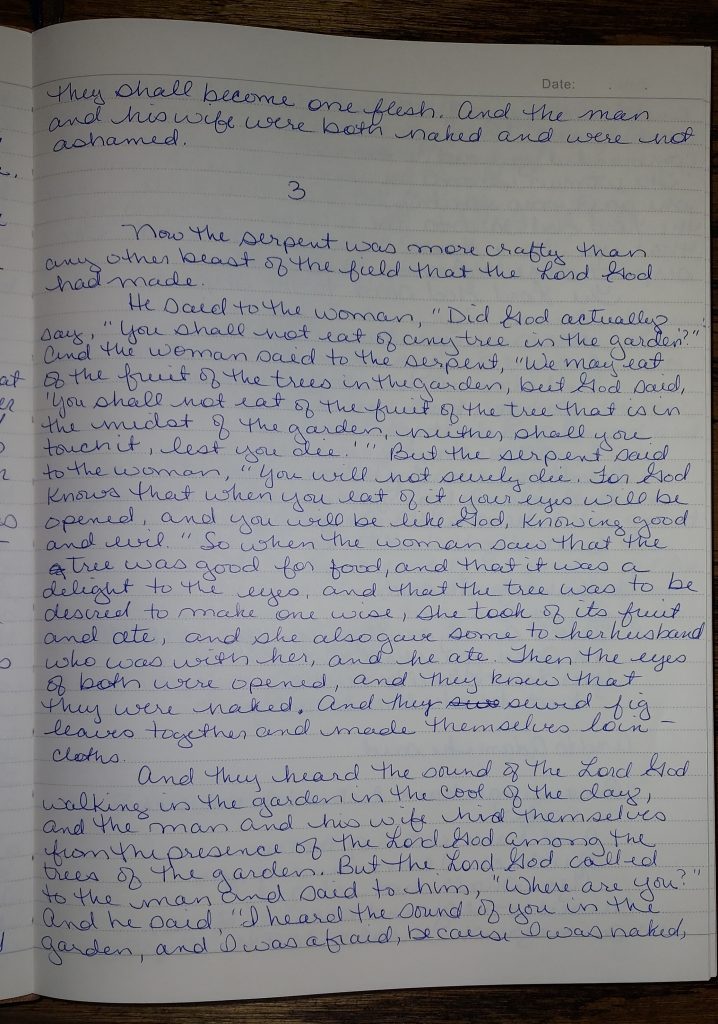 Date:
they shall become one flesh. And the man
and his wife were both naked and were not
ashamed.
3
Now the serpent was more crafty than
any other beast of the field that the Lord God
had made.
He said to the woman, "Did God actually
say, "You shall not eat of any tree in the garden?"
And the woman said to the serpent, "We may eat
of the fruit of the trees in the garden, but God said,
'You shall not eat of the fruit of the tree that is in
the midst of the garden, neither shall you
touch it, lest you die.'" But the serpent said
to the woman, "You will not surely die. For God
knows that when you eat of it your eyes will be
opened, and you will be like God, knowing good
and evil." So when the woman saw that the
tree was good for food, and that it was a
delight to the eyes, and that the tree was to be
desired to make one wise, she took of its fruit
and ate, and she also gave some to her husband
who was with her, and he ate. Then the eyes
of both were opened, and they knew that
they were naked. And they sewed fig
leaves together and made themselves loin-
cloths.
And they heard the sound of the Lord God
walking in the garden in the cool of the day,
and the man and his wife hid themselves
from the presence of the Lord God among the
trees of the garden. But the Lord God called
to the man and said to him, "Where are you?"
And he said, "I heard the sound of you in the
garden, and I was afraid, because I was naked,